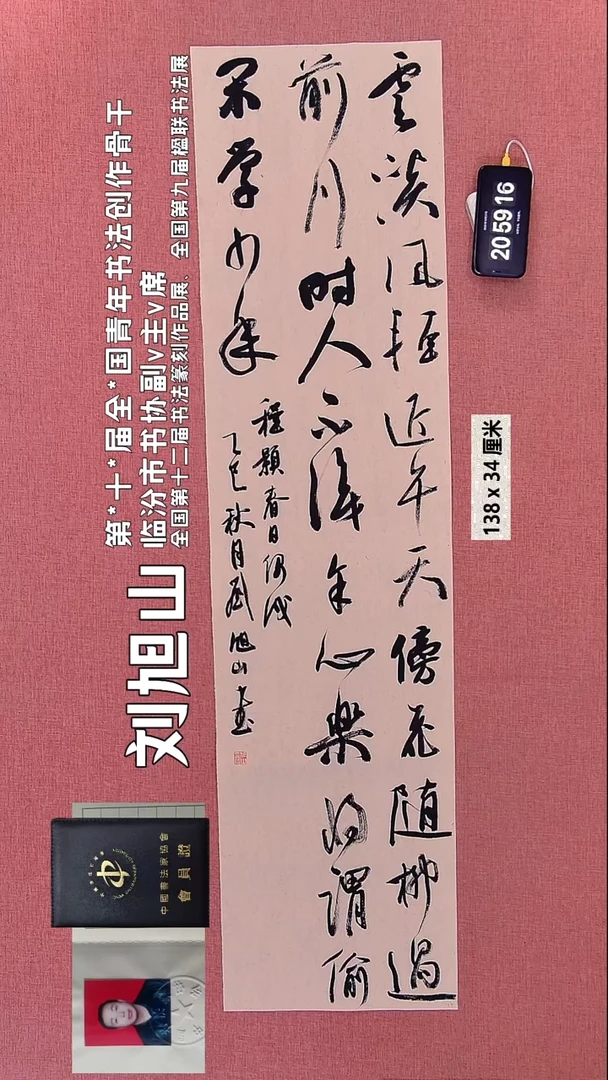 雲淡风輕近午天傍花随柳過
前川时人不識余心樂将謂偷
閑学少年
程顥春日偶成
乙巳秋月刘旭山書
第*十*届全*国青年书法创作骨干
临汾市书协副v主v席
全国第十二届书法篆刻作品展、全国第九届楹联书法展
刘旭山
中國書法家協會
會員證
20 59 16
138 x 34 厘米